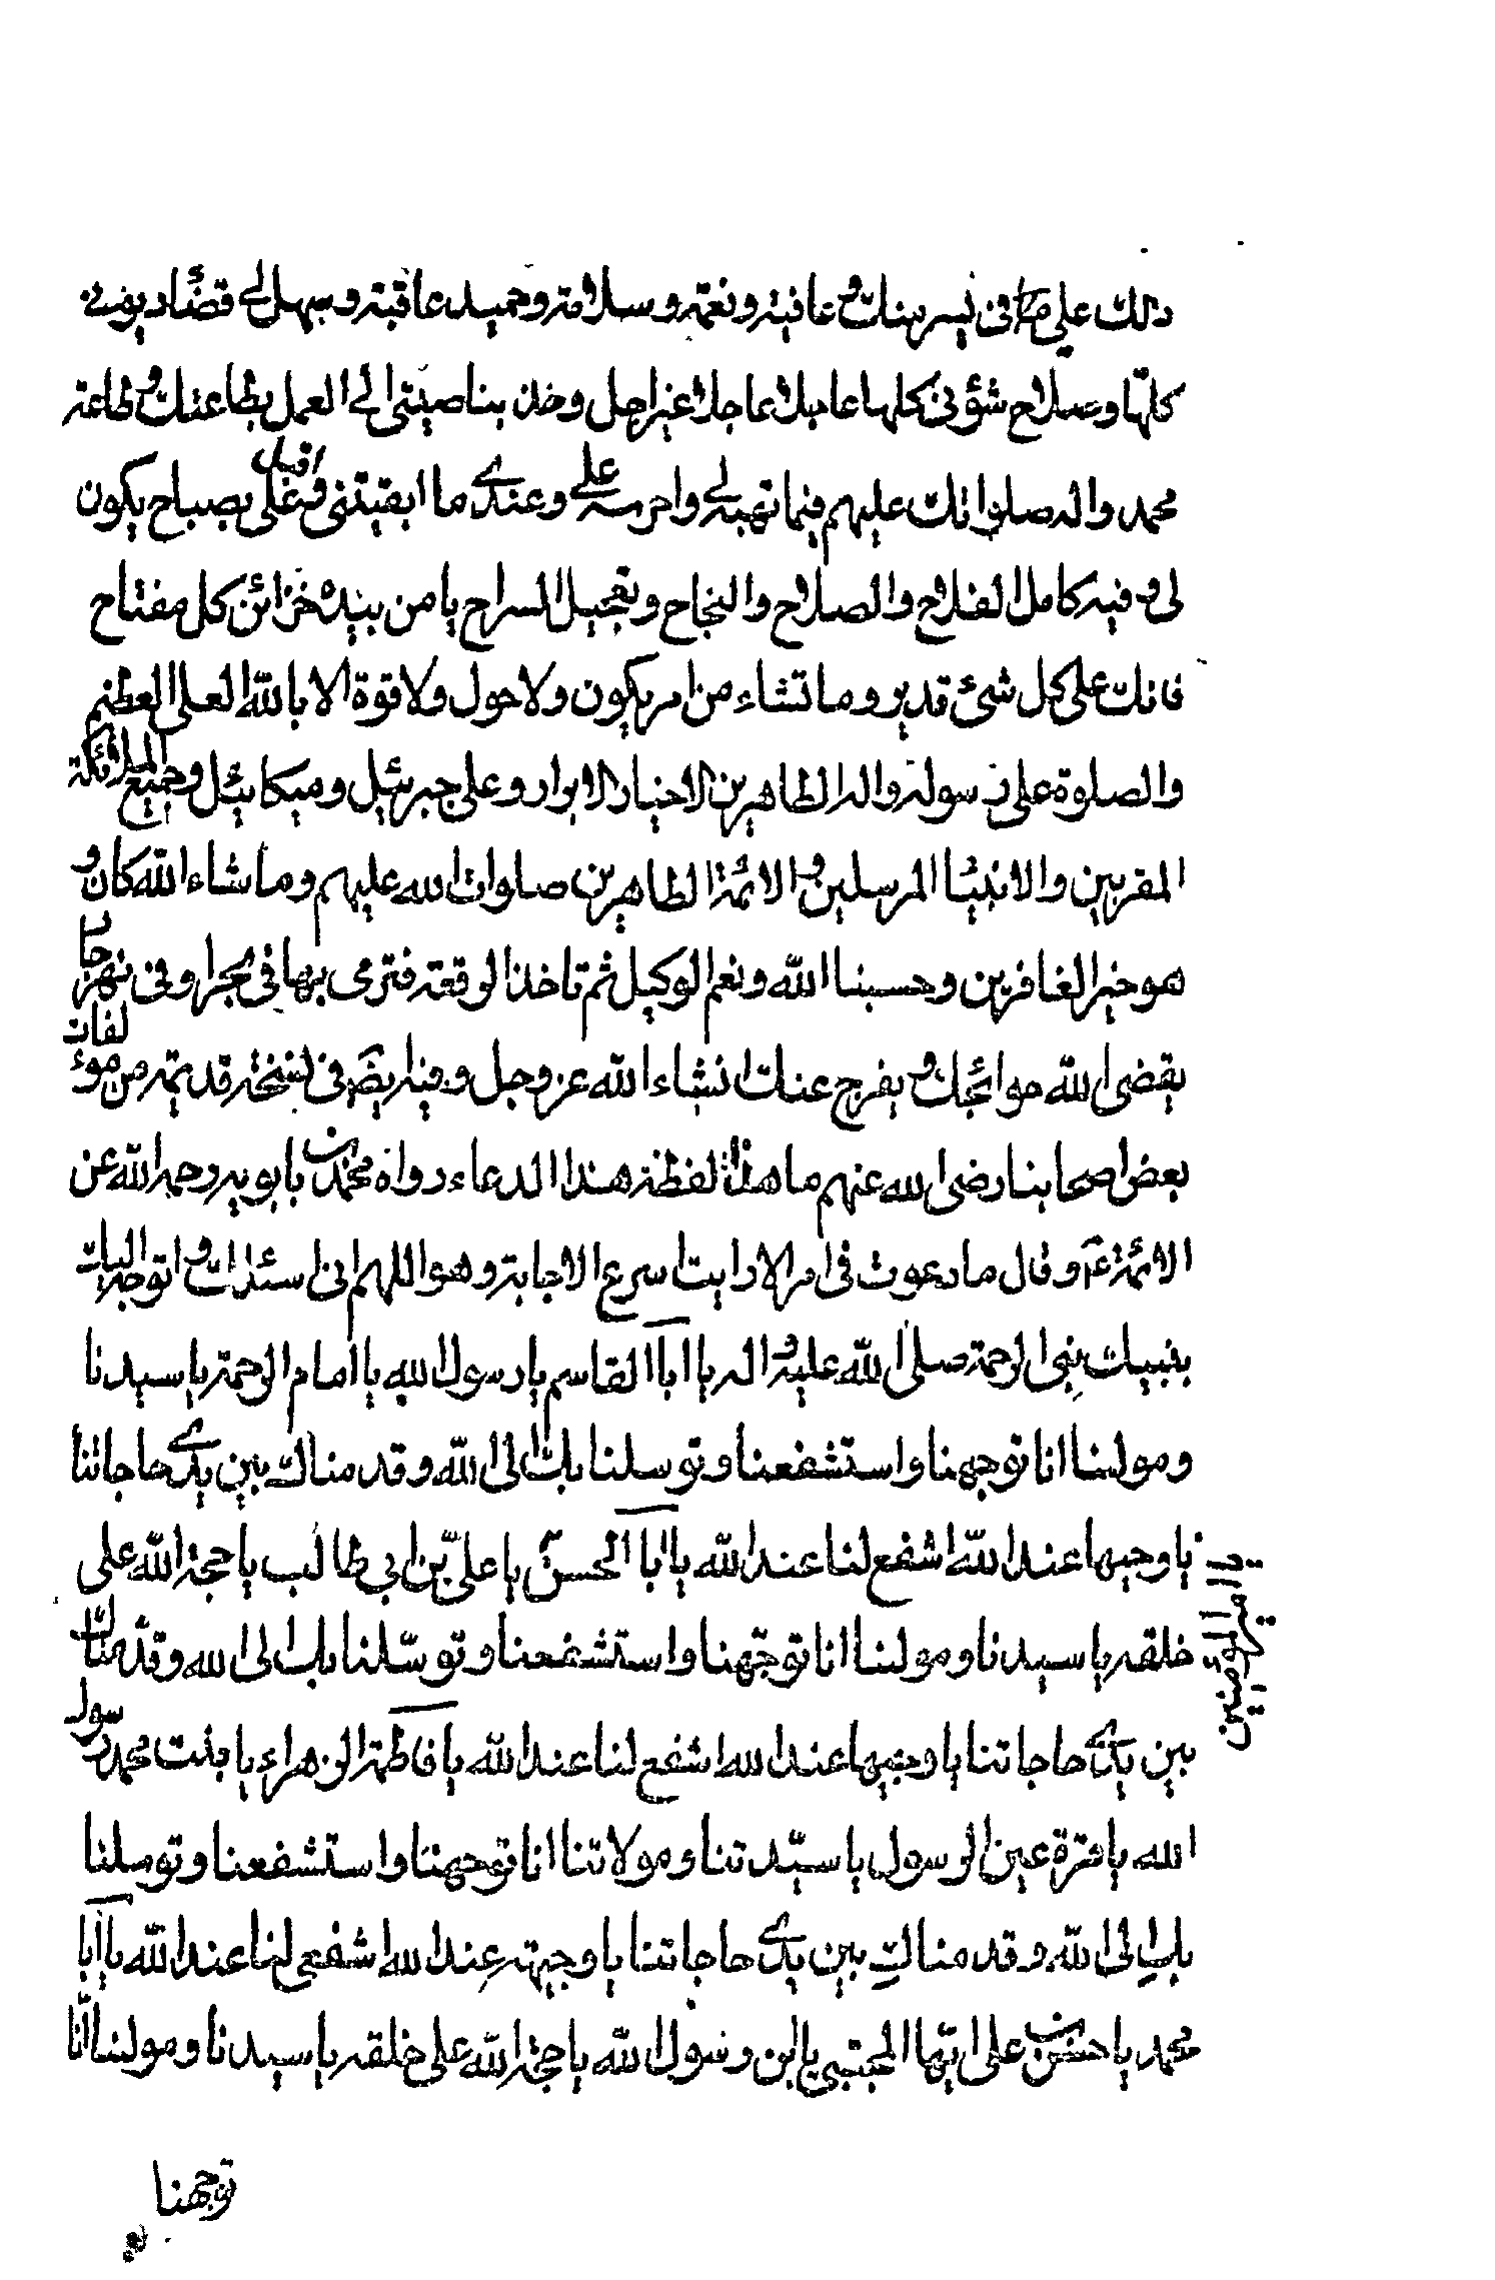 ذلك على في يسر منك و عافية و نعمة و سلامة و حميد عاقبة و سهل لى قضاء ديونى
كلها و صلاح شؤنى كلها عاجلا عاجلا غير اجل و خذ بناصيتى الى العمل بطاعتك و طاعة
محمد و اله صلواتك عليهم فيما تهبه لى و احرسه على و عندى ما ابقيتنى و اقبل على بصباح يكون
لى و فيه كامل الفلاح و الصلاح و النجاح و تعجيل السراح يا من بيده خزائن كل مفتاح
فانك على كل شئ قدير و ما تشاء من امر يكون و لا حول و لا قوة الا بالله العلى العظيم
و الصلوة على رسوله و اله الطاهرين الاخيار الابرار و على جبرئيل و ميكائيل و جميع الملائكة
المقربين و الانبياء المرسلين و الائمة الطاهرين صلوات الله عليهم و ما شاء الله كان و
هو خير الغافرين و حسبنا الله و نعم الوكيل ثم تاخذ الرقعة فترمى بها فى بحر او فى نهر جار
يقضى الله حوائجك و يفرج عنك انشاء الله عز و جل و فيه ايضا فى نسخة قديمة من مؤلفات
بعض اصحابنا رضى الله عنهم ما هذا لفظه هذا الدعاء رواه محمد بن بابويه رحمه الله عن
الائمة ع و قال ما دعوت فى امر الا رايت سرع الاجابة و هو اللهم انى اسئلك و اتوجه اليك
بنبيك نبى الرحمة صلى الله عليه و اله يا ابا القاسم يا رسول الله يا امام الرحمة يا سيدنا
و مولينا انا توجهنا و استشفعنا و توسلنا بك الى الله و قدمناك بين يدى حاجاتنا
يا وجيها عند الله اشفع لنا عند الله يا ابا الحسن يا امير المؤمنين يا على بن ابي طالب يا حجة الله على
خلقه يا سيدنا و مولينا انا توجهنا و استشفعنا و توسلنا بك الى الله و قدمناك
بين يدى حاجاتنا يا وجيها عند الله اشفع لنا عند الله يا فاطمة الزهراء يا بنت محمد رسول
الله يا قرة عين الرسول يا سيدتنا و مولاتنا انا توجهنا و استشفعنا و توسلنا
بك الى الله و قدمناك بين يدى حاجاتنا يا وجيهة عند الله اشفعى لنا عند الله يا ابا
محمد يا حسن بن على ايها المجتبى يا ابن رسول الله يا حجة الله على خلقه يا سيدنا و مولينا انا
توجهنا